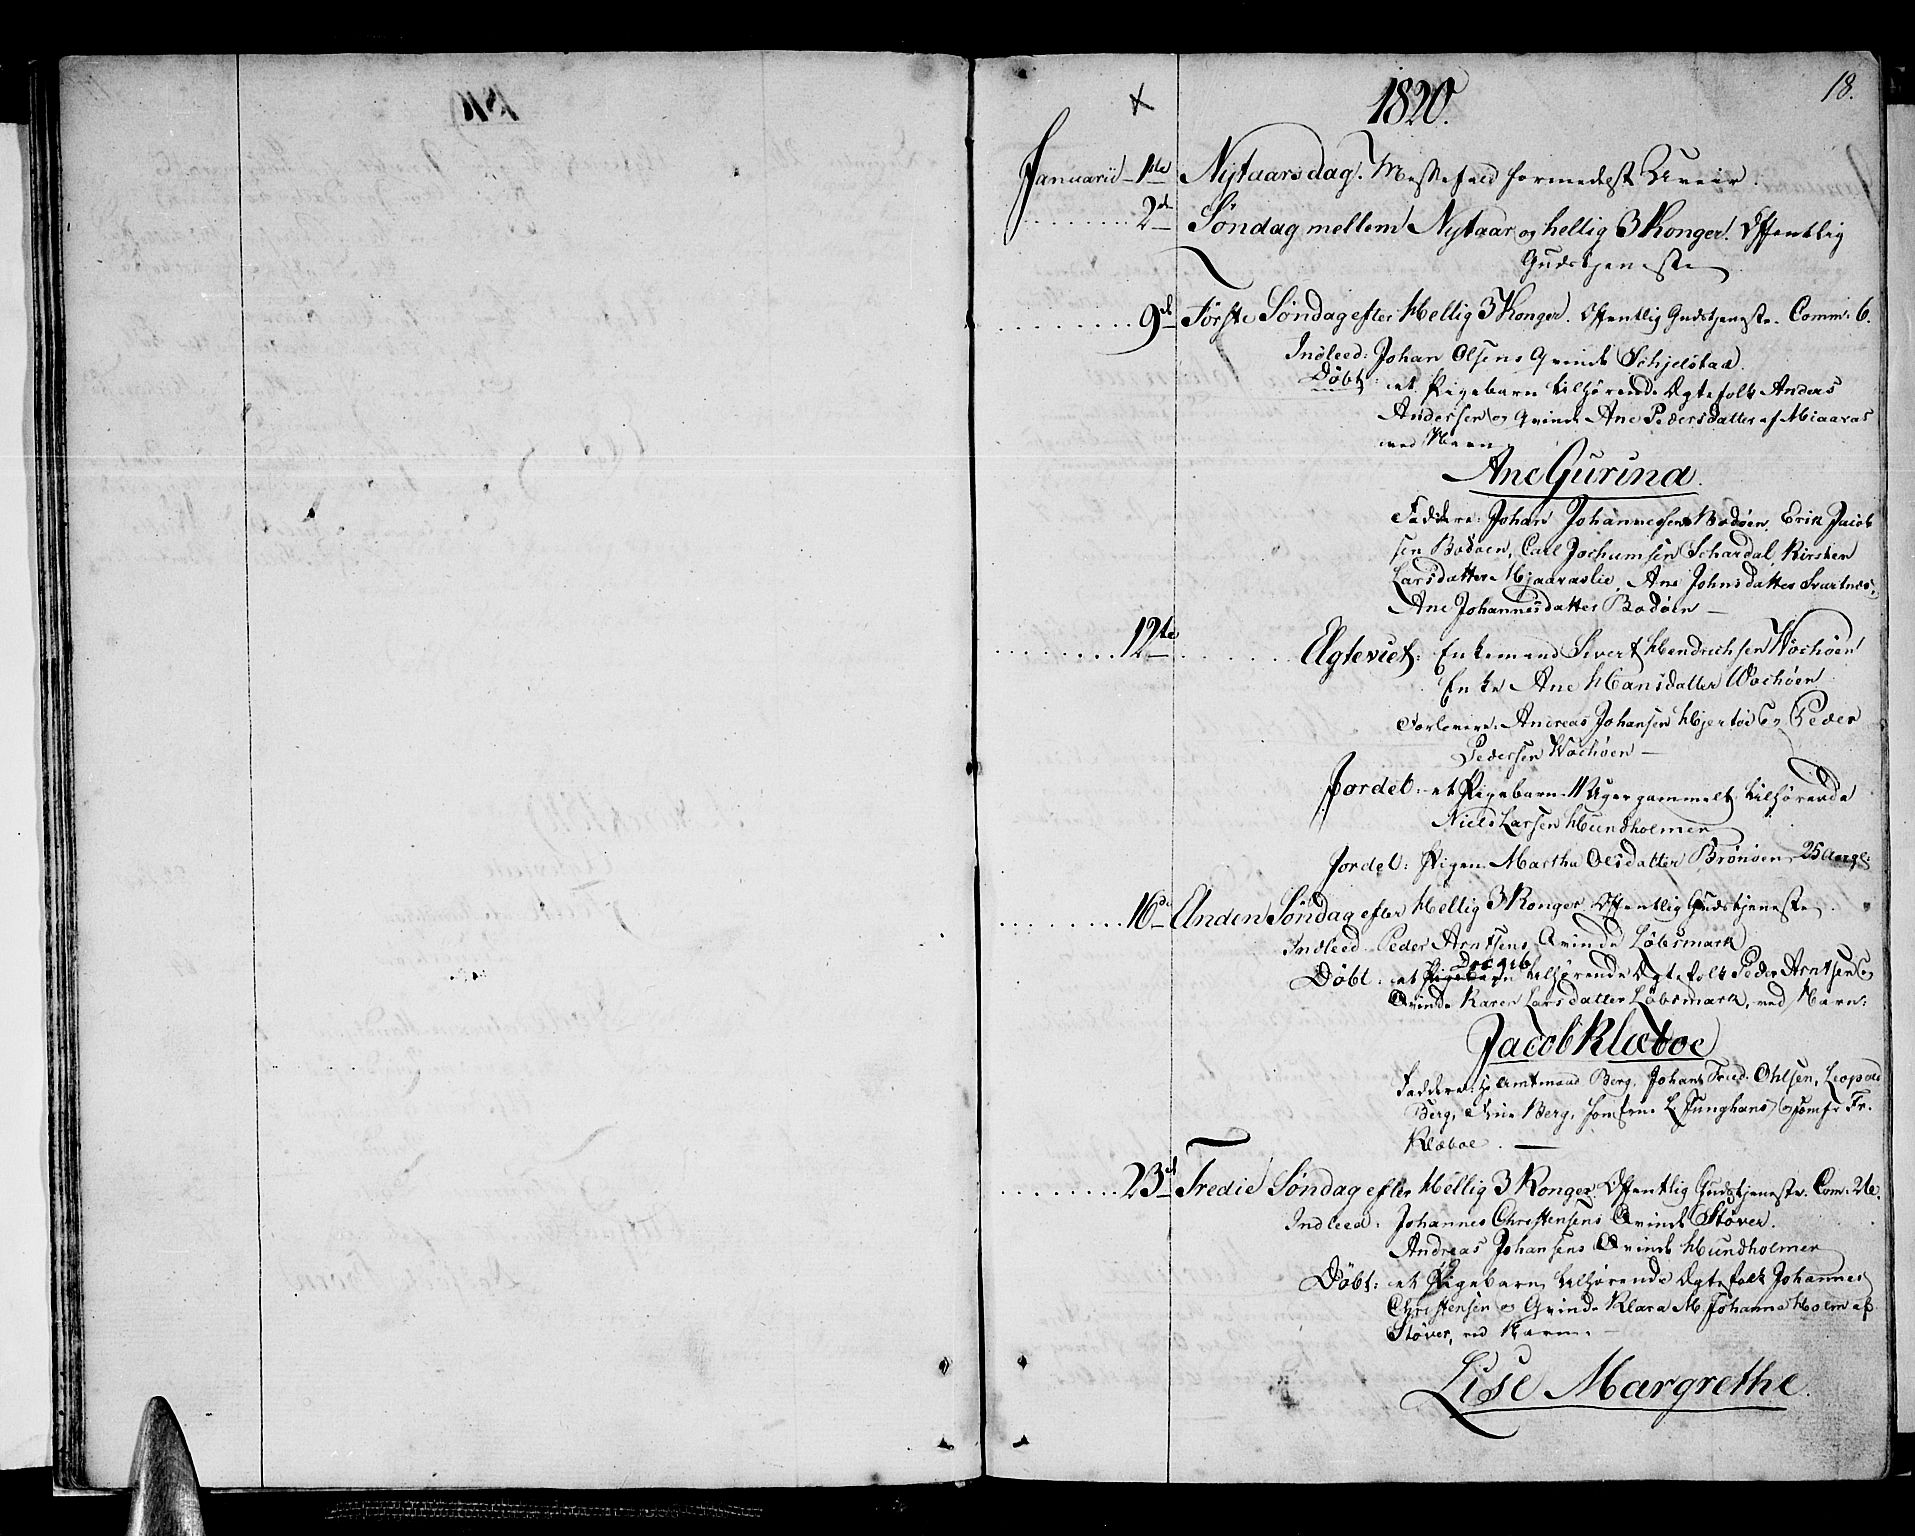 18.
1820.
Januarii 1ste Nytaarsdag. Messefald formedelst Uveir.
2den Søndag mellem Nytaar og hellig 3 Konger. Offentlig
Gudstjeneste
9de Første Søndag efter Hellig 3 Konger. Offentlig Gudstjeneste. Comm: 6.
Indleed: Johan Olsens Qvinde Schjelstad.
Døbt: et Pigebarn tilhørende Ægtefolk Andreas
Andersen og Qvinde Ane Pedersdatter af Miaavas
ved Navn
Ane Gurina.
Faddere: Johan Johannessen Bodøen, Erik Jacob
sen Bodøen, Carl Jochumsen Schavdal, Kirsten
Larsdatter Mjaavaslie, Ane Johnsdatter Svartnes,
Ane Johannesdatter Bodøen —
12te Ægteviet: Enkemand Sivert Hendrichsen Wochøen
Enke Ane Hansdatter Wochøen
Forlovere: Andreas Johansen Hjertøe og Peder
Pedersen Wochøen —
Jordet: et Pigebarn 11 Uger gammelt tilhørende
Niels Larsen Hundholmen
Jordet: Pigen Martha Olsdatter Brønøen, 25 Aar gl:
16de Anden Søndag efter Hellig 3 Konger Offentlig Gudstjeneste
Indleed Peder Arntsens Qvinde Løbsmark
Døbt: et Pigebarn Drengeb tilhørende Ægtefolk Peder Arntsen og
Qvinde Karen Larsdatter Løbsmark, ved Navn:
Jacob Klæboe
Faddere: Hr Amtmand Berg, Johan Fried. Ohlsen, Leopold
Berg, Berg, Jomfrue L Junghans og Jomfr Fr.
Klæboe. —
23de Tredie Søndag efter Hellig 3 Konger. Offentlig Gudstjeneste. Com: 26.
Indleed: Johannes Christensens Qvinde Støver.
Andreas Johansens Qvinde Hundholmen
Døbt: et Pigebarn tilhørende Ægtefolk Johannes
Christensen og Qvinde Klara M. Johanna Holm af
Støver, ved Navn. —
Lise Margrethe.